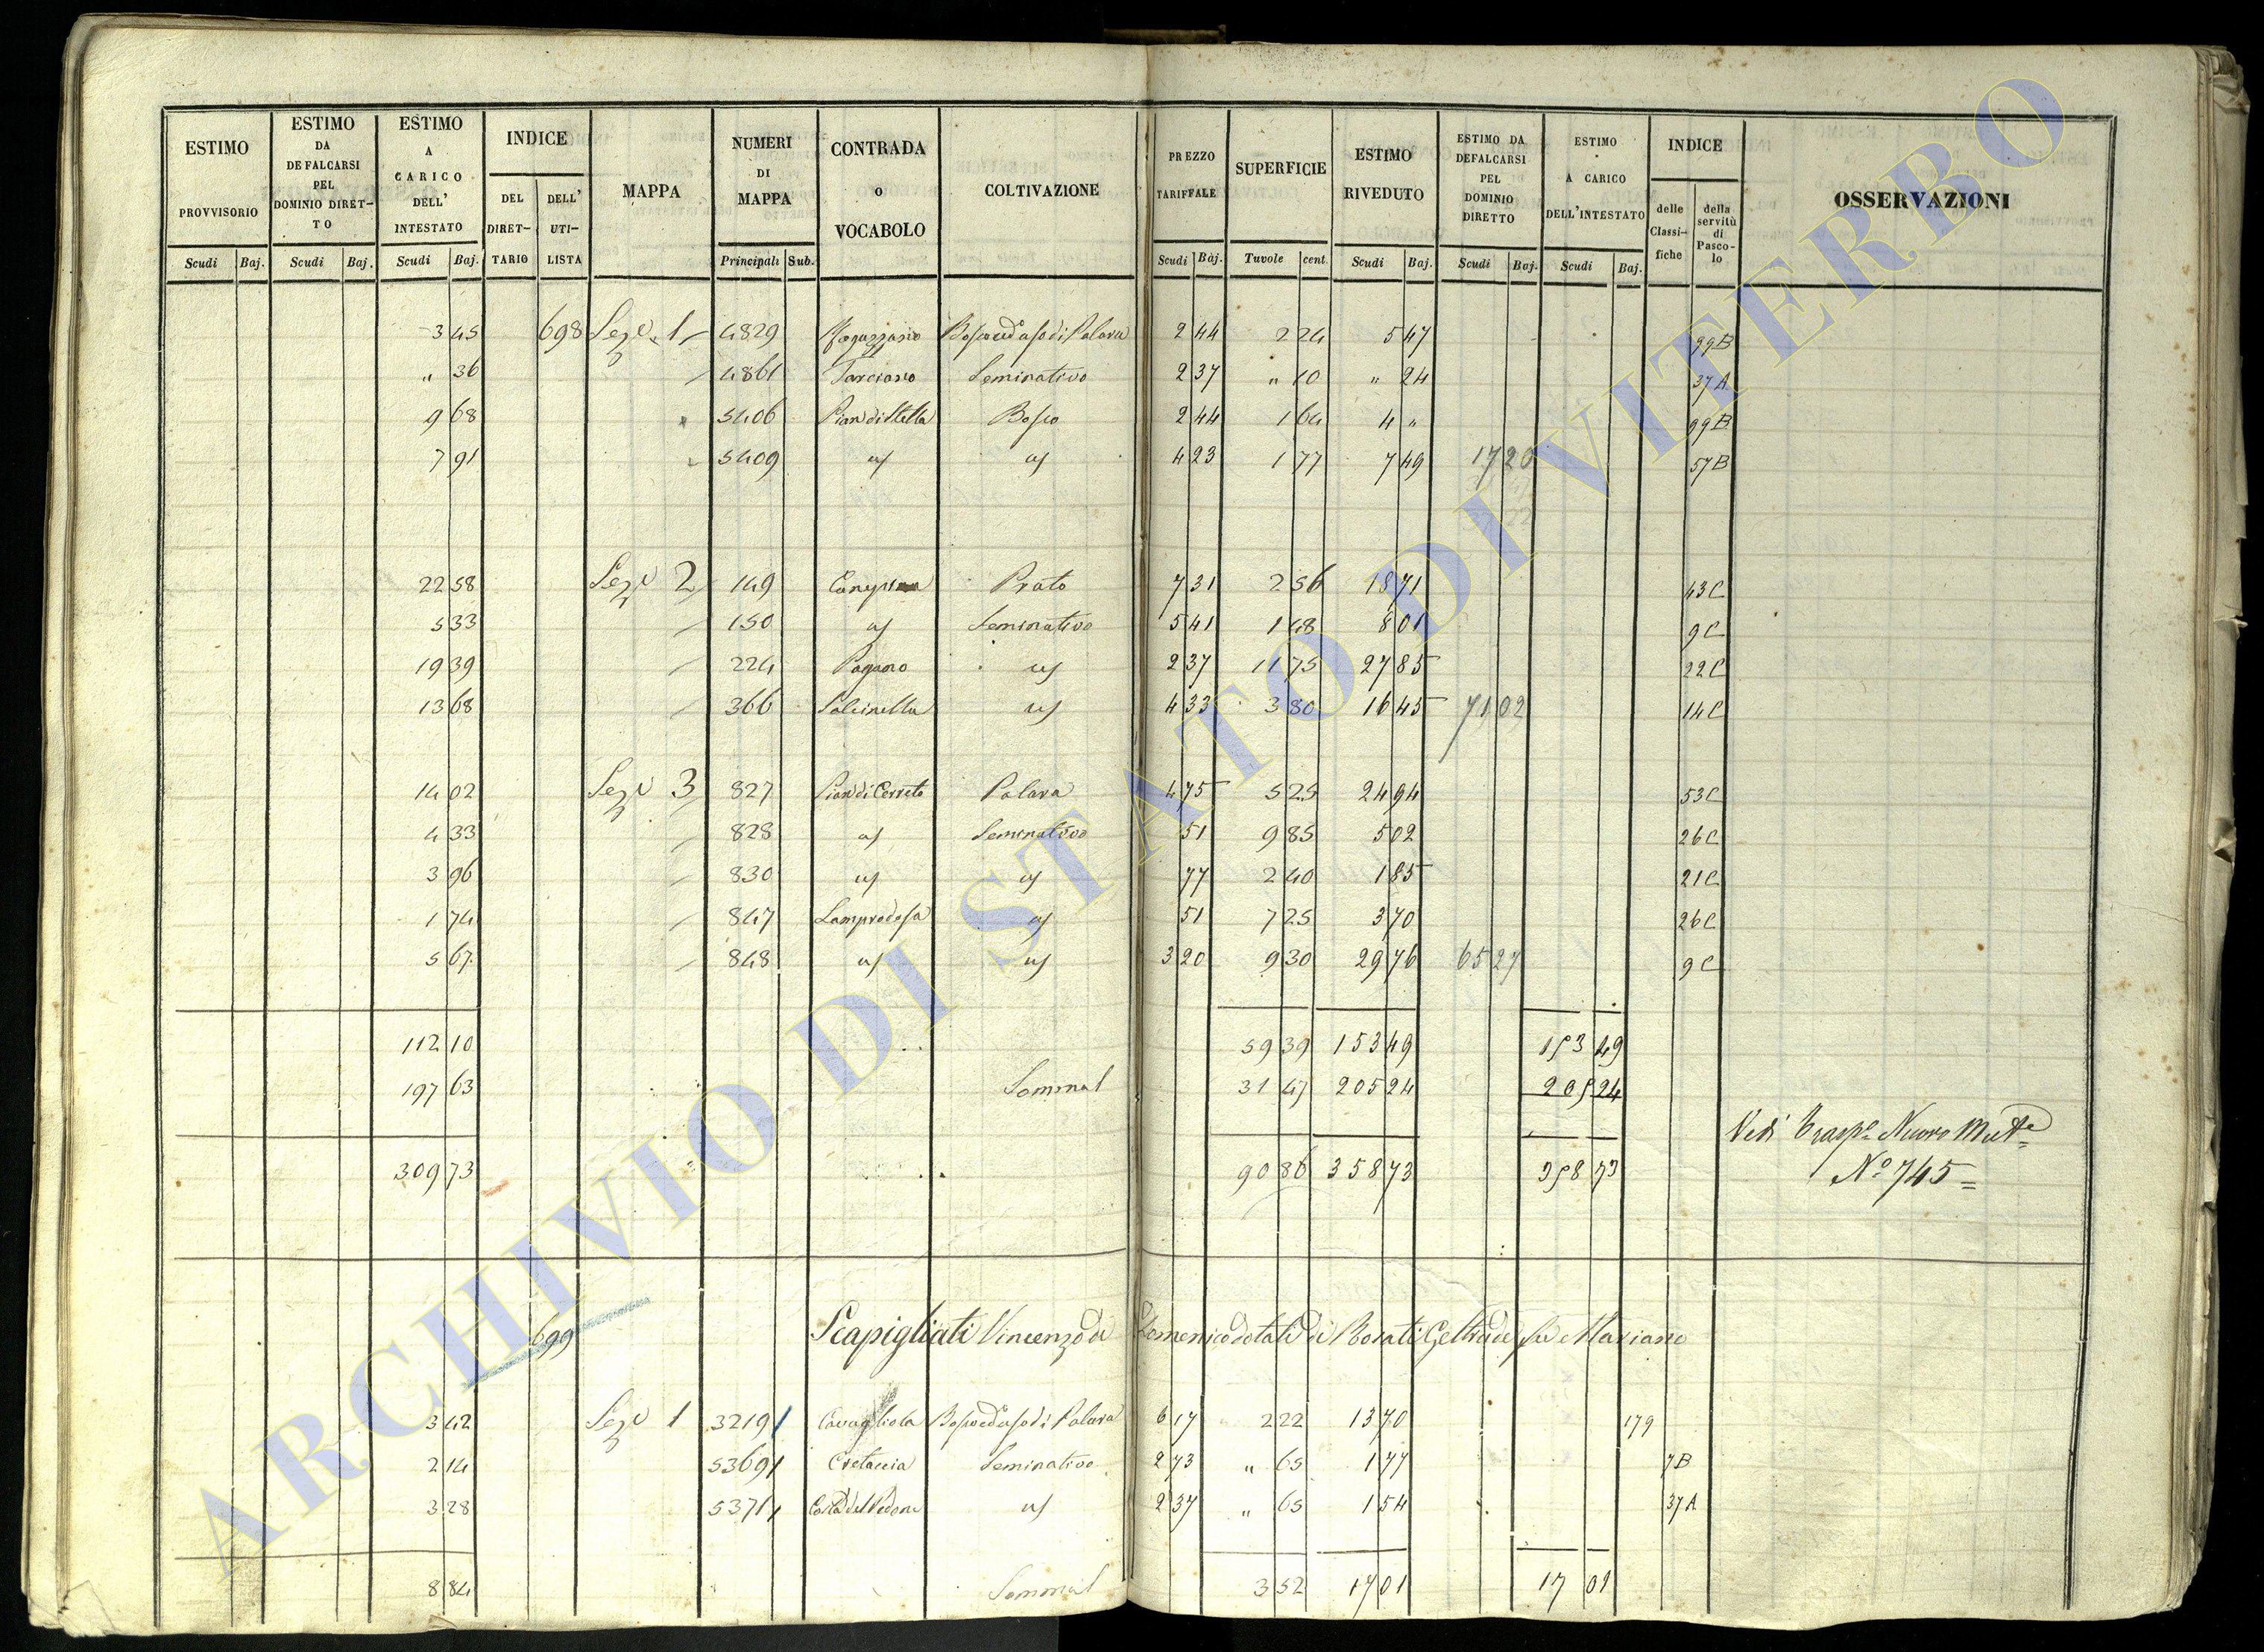 ESTIMO PROVVISORIO | ESTIMO DA DEFALCARSI PEL DOMINIO DIRET-TO | ESTIMO A CARICO DELL' INTESTATO | INDICE | MAPPA | NUMERI DI MAPPA | CONTRADA o VOCABOLO | COLTIVAZIONE | PREZZO TARIFFALE | SUPERFICIE | ESTIMO RIVEDUTO | ESTIMO DA DEFALCARSI PEL DOMINIO DIRETTO | ESTIMO A CARICO DELL'INTESTATO | INDICE | OSSERVAZIONI
DEL DIRET-TARIO | DELL' UTI-LISTA | delle Classi-fiche | della servitù di Pasco-lo
Scudi | Baj. | Scudi | Baj. | Scudi | Baj. | Principali | Sub. | Scudi | Baj. | Tavole | cent. | Scudi | Baj. | Scudi | Baj. | Scudi | Baj.
3 45 698 Sez.e 1 4829 2 44 2 24 5 47 99B
" 36 4861 Tarciano Seminativo 2 37 " 10 " 24 37A
9 68 5406 Pian di Stella Bosco 2 44 1 64 4 " 99B
7 91 5409 4 23 1 77 7 49 17 20 57B
22 58 Sez.e 2 149 Prato 7 31 2 56 18 71 43C
5 33 150 Seminativo 5 41 1 48 8 01 9C
19 39 224 Pagano 2 37 11 75 27 85 22C
13 68 366 Salcinella 4 33 3 80 16 45 71 02 14C
14 02 Sez.e 3 827 Pian di Cerreto Palara 4 75 5 25 24 94 53C
4 33 828 Seminativo 51 9 85 5 02 26C
3 96 830 77 2 40 1 85 21C
1 74 847 51 7 25 3 70 26C
5 67 848 3 20 9 30 29 76 65 27 9C
112 10 59 39 153 49 153 49
197 63 Somma 31 47 205 24 205 24
Vedi Trasp.o Nuovo Mat.e
309 73 90 86 358 73 358 73 N.o 745
699 Scapigliati Vincenzo di Domenico dotati di Rosati Geltrude fu Mariano
3 42 Sez.e 1 3219 1 Cavagliola Bosco ed uso di Palara 6 17 2 22 13 70 179
2 14 5369 1 Cretaccia Seminativo 2 73 " 65 1 77 7B
3 28 5371 2 37 " 65 1 54 37A
8 84 Somma 3 52 17 01 17 01
ARCHIVIO DI STATO DI VITERBO